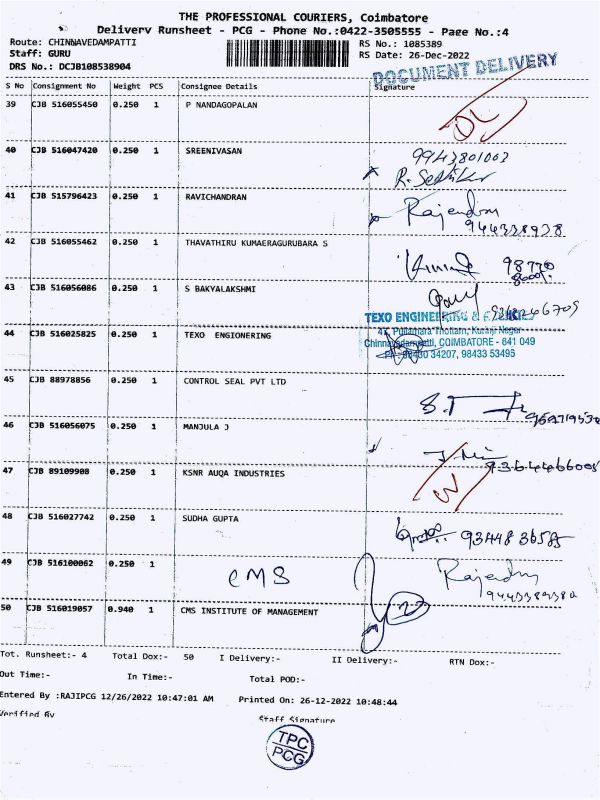 THE PROFESSIONAL COURIERS, Coimbatore
Delivery Runsheet - PCG - Phone No.:0422-3505555 - Page No.:4
Route: CHINNAVEDAMPATTI
RS No.: 1085389
Staff: GURU
RS Date: 26-Dec-2022
DRS No.: DCJB108538904
DOCUMENT DELIVERY
S No Consignment No Weight PCS Consignee Details Signature
39 CJB 516055450 0.250 1 P NANDAGOPALAN
40 CJB 516047420 0.250 1 SREENIVASAN
9943801003
41 CJB 515796423 0.250 1 RAVICHANDRAN
Rajendran
42 CJB 516055462 0.250 1 THAVATHIRU KUMAERAGURUBARA S
43 CJB 516056086 0.250 1 S BAKYALAKSHMI
TEXO ENGINEERING &
44 CJB 516025825 0.250 1 TEXO ENGIONERING
47, Pullathara Thottam, Kurinji Nagar
Chinnavedampatti, COIMBATORE - 641 049
34207, 98433 53495
45 CJB 88978856 0.250 1 CONTROL SEAL PVT LTD
46 CJB 516056075 0.250 1 MANJULA J
47 CJB 89109908 0.250 1 KSNR AUQA INDUSTRIES
48 CJB 516027742 0.250 1 SUDHA GUPTA
49 CJB 516100062 0.250 1
CMS
Rajendran
9443389380
50 CJB 516019057 0.940 1 CMS INSTITUTE OF MANAGEMENT
Tot. Runsheet:- 4 Total Dox:- 50 I Delivery:- II Delivery:- RTN Dox:-
Out Time:- In Time:- Total POD:-
Entered By :RAJIPCG 12/26/2022 10:47:01 AM Printed On: 26-12-2022 10:48:44
Verified By Staff Signature
TPC
PCG